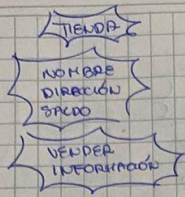 TIENDA
NOMBRE
DIRECCIÓN
SALDO
VENDER
INFORMACIÓN